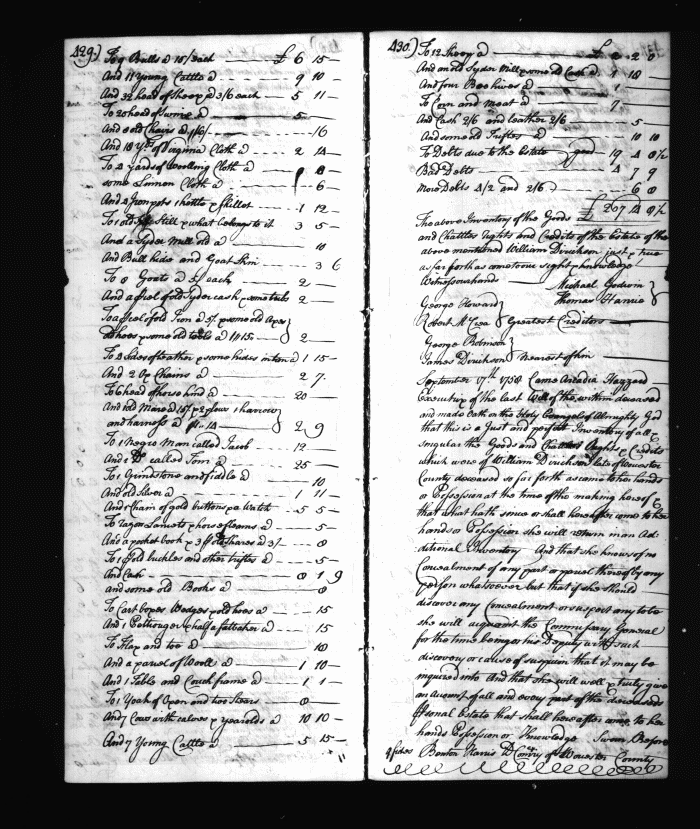 429.) To 9 Bulls a 15/ each £ 6 15 -
And 11 Young Cattle a 9 10 -
And 32 head of Sheep a 3/6 each 5 11 -
To 20 head of Swine a 5 -
And 8 old Chairs a 1/6 /16
And 18 Yds of Virginia Cloth a 2 14
To 4 yards of Woolling Cloth a 8
some Linnen Cloth a 6 -
And 2 Iron pots 1 kettle & skillet 1 12
To 1 old Still & what belongs to it 3 5 -
And a Syder Mill old a 10
And Bull hides and Goat Skin 3 6
To 8 Goats a 5/ each 2 -
And a parcel of old Syder cask & some tubs 2 -
To a parcel of old Iron a 5/ & some old Axes
old hoes & some old tools a 1 15 2 -
To 4 sides of leather & some hides in tan a 1 15 -
And 2 Ox Chains a 2 7.
To 6 head of horse kind a 20 -
And 1 old Mare a 15/ & 2 plow 1 harrow
and harness a 1.14 2 9
To 1 Negro Man called Jacob 12 -
And 1 Do called Tom a 25 -
To 1 Grindstone and fiddle a 10
And old Silver a 1 11
And 1 Chain of gold buttons & a Watch 5 5 -
To razor Lancets & horse fleams a 5 -
And a pocket book & 3 shares a 3/ 8
To 1 buckles and other trifles a 5 -
And Cash 8 1 9
and some old Books a 8
To Cart boxes Wedges & old hoes a 15
And 1 Pottinger & half a a 15
To Flax and tow a 10
And a parcel of Wooll a 1 10 -
And 1 Table and Couch frame a 1 1 -
To 1 Yoak of Oxen and two Stears 8 -
And 7 Cows with calves & yearolds a 10 10 -
And 7 Young Cattle a 5 15 -
430.) To 12 Sheep a £ 2 2 0
And an old Syder Mill & some old Cask a 1 10
And four Bee hives a 1
To Corn and Meat a 7
And Cash 2/6 and leather 2/6 5 -
And some old Trifles a 10 10
To Debts due to the Estate good 19 4 8½
Bad Debts 4 7 9
More Debts 4/2 and 2/6 6 8
£ 207 14 9½
The above Inventory of the Goods
and Chattles rights and Credits of the Estate of the
above mentioned William Dirickson just & true
as far forth as come to our sight & knowledge
Witness our hands Michael Godwin
Thomas Harris
George Howard
Robert McCrea Greatest Creditors
George Robinson
James Dirickson Nearest of kin
September 17th 1750 Came Arcadia Hazzard
Executrix of the last Will of the within deceased
and made Oath on the Holy Evangel of Almighty God
that this is a Just and perfect Inventory of all &
singular the Goods and Chattels Rights & Credits
which were of William Dirickson late of Worcester
County deceased so far forth as came to her hands
or Possession at the time of the making hereof &
that what hath since or shall hereafter come to her
hands or Possession she will return in an Ad-
ditional Inventory And that she knows of no
Concealment of any part or parcel thereof by any
person whatsoever but that if she should
discover any Concealment or suspect any to be
she will acquaint the Commissary General
for the time being or his Deputy with such
discovery or cause of suspicion that it may be
inquired into And that she will well & truly give
an account of all and every part of the deceaseds
personal Estate that shall hereafter come to her
hands Possession or Knowledge Sworn Before
4 sides Benton Harris D Comry of Worcester County